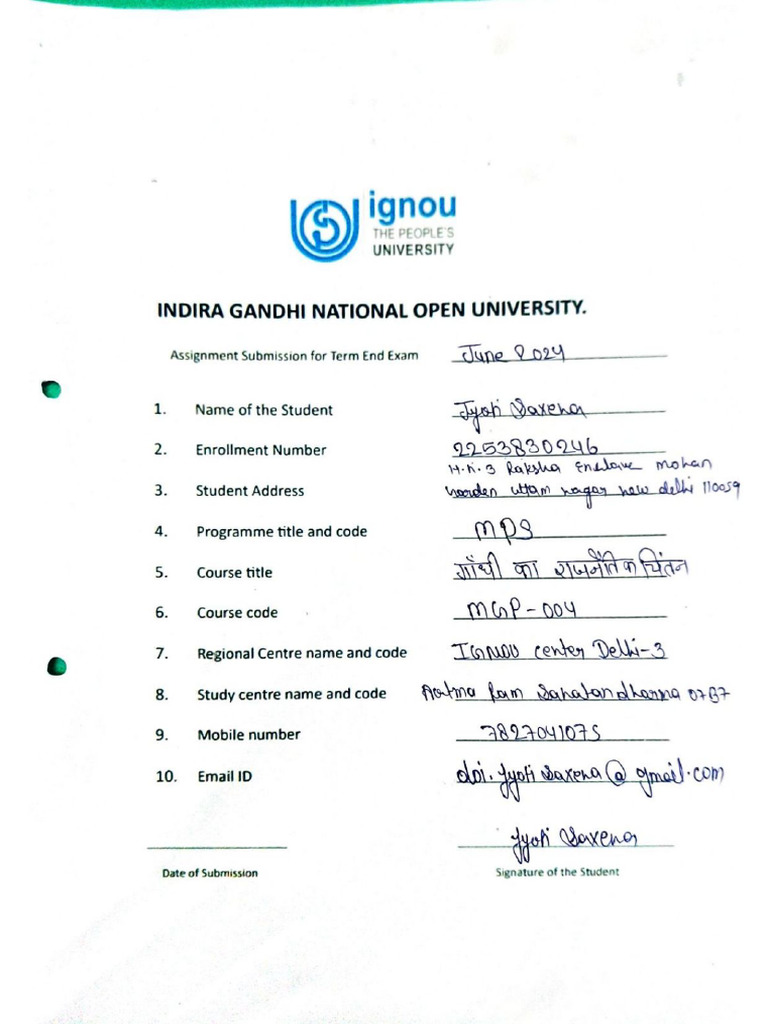 ignou
THE PEOPLE'S
UNIVERSITY
INDIRA GANDHI NATIONAL OPEN UNIVERSITY.
Assignment Submission for Term End Exam June 2024
1. Name of the Student Jyoti Saxena
2. Enrollment Number 2253830246
H.N. 3 Raksha Enclave mohan
3. Student Address Garden uttam nagar new delhi 110059
4. Programme title and code MPS
5. Course title गाँधी का राजनैतिक चिंतन
6. Course code MGP-004
7. Regional Centre name and code IGNOU center Delhi-3
8. Study centre name and code Aatma Ram Sanatandharma
9. Mobile number 7827041075
10. Email ID Jyoti Saxena@gmail.com
Jyoti Saxena
Date of Submission Signature of the Student